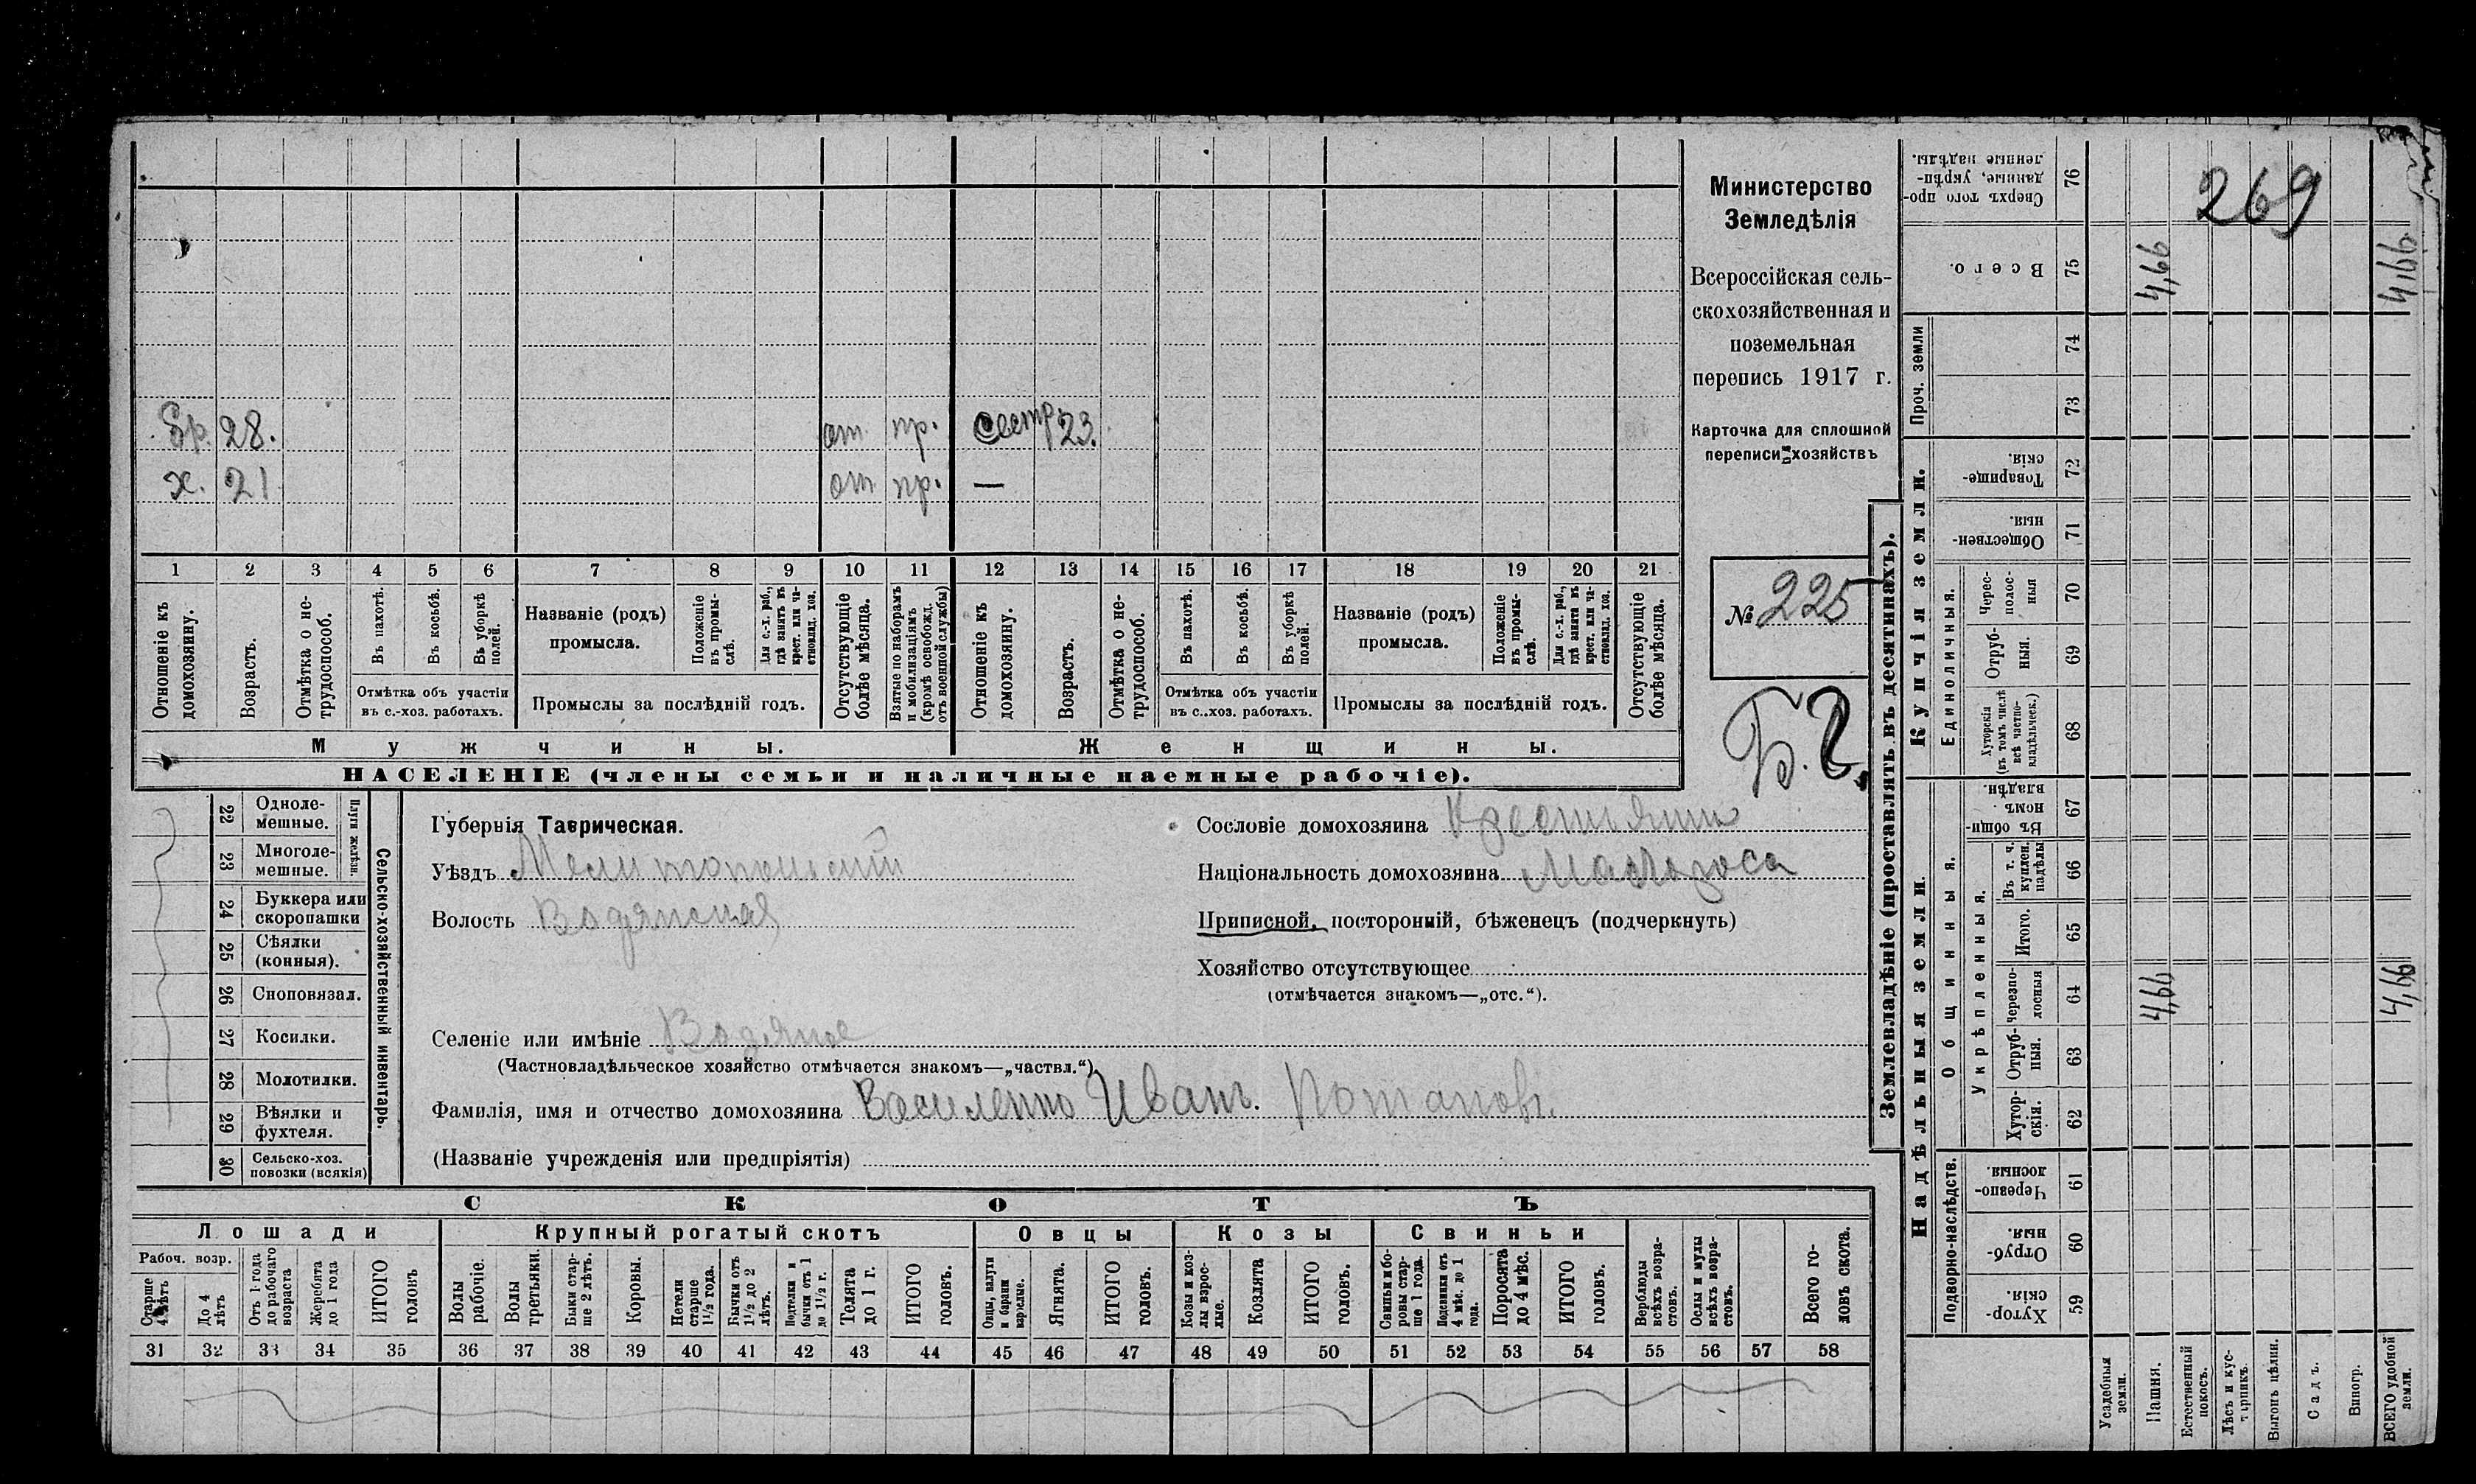 Министерство
Земледѣлія
Всероссійская сель-
скохозяйственная и
поземельная
перепись 1917 г.
Карточка для сплошной
переписи хозяйствъ
№ 225
Б. 2.
269
Бр. 28. от. пр. сестр 23.
х. 21 от пр. —
1 2 3 4 5 6 7 8 9 10 11 12 13 14 15 16 17 18 19 20 21
Отношеніе къ домохозяину.
Возрастъ.
Отмѣтка о не-трудоспособ.
Въ пахотѣ.
Въ косьбѣ.
Въ уборкѣ полей.
Отмѣтка объ участіи
въ с.-хоз. работахъ.
Названіе (родъ)
промысла.
Положеніе въ промы-слѣ.
Для с.-х. раб., гдѣ занятъ въ крест. или ча-стновлад. хоз.
Промыслы за послѣдній годъ.
Отсутствующіе болѣе мѣсяца.
Взятые по наборамъ и мобилизаціямъ (кромѣ освобожд. отъ военной службы)
Отношеніе къ домохозяину.
Возрастъ.
Отмѣтка о не-трудоспособ.
Въ пахотѣ.
Въ косьбѣ.
Въ уборкѣ полей.
Отмѣтка объ участіи
въ с.-хоз. работахъ.
Названіе (родъ)
промысла.
Положеніе въ промы-слѣ.
Для с.-х. раб., гдѣ занятъ въ крест. или ча-стновлад. хоз.
Промыслы за послѣдній годъ.
Отсутствующіе болѣе мѣсяца.
Мужчины. Женщины.
НАСЕЛЕНІЕ (члены семьи и наличные наемные рабочіе).
Сельско-хозяйственный инвентарь.
Плуги желѣзн.
22 Одноле-мешные.
23 Многоле-мешные.
24 Буккера или скоропашки
25 Сѣялки (конныя).
26 Сноповязал.
27 Косилки.
28 Молотилки.
29 Вѣялки и фухтеля.
30 Сельско-хоз. повозки (всякія)
Губернія Таврическая.
Уѣздъ Мелитопольскій
Волость Водянская
Селеніе или имѣніе Водяное
(Частновладѣльческое хозяйство отмѣчается знакомъ—„частвл.“)
Фамилія, имя и отчество домохозяина Василенко Иванъ. Потаповъ.
(Названіе учрежденія или предпріятія)
Сословіе домохозяина Крестьянин
Національность домохозяина Малороса
Приписной, посторонній, бѣженецъ (подчеркнуть)
Хозяйство отсутствующее
(отмѣчается знакомъ—„отс.“).
СКОТЪ
Лошади Крупный рогатый скотъ Овцы Козы Свиньи
Рабоч. возр.
Старше 4 лѣтъ
До 4 лѣтъ
Отъ 1 года до рабочаго возраста
Жеребята до 1 года
ИТОГО головъ
Волы рабочіе.
Волы третьяки.
Быки стар-ше 2 лѣтъ.
Коровы.
Нетели старше 1½ года.
Бычки отъ 1½ до 2 лѣтъ.
Подтелки и бычки отъ 1 до 1½ г.
Телята до 1 г.
ИТОГО головъ.
Овцы, валухи и бараны взрослые.
Ягнята.
ИТОГО головъ.
Козы и коз-лы взрос-лые.
Козлята
ИТОГО головъ.
Свиньи и бо-ровы стар-ше 1 года.
Подсвинки отъ 4 мѣс. до 1 года.
Поросята до 4 мѣс.
ИТОГО головъ.
Верблюды всѣхъ возра-стовъ.
Ослы и мулы всѣхъ возра-стовъ.
Всего го-ловъ скота.
31 32 33 34 35 36 37 38 39 40 41 42 43 44 45 46 47 48 49 50 51 52 53 54 55 56 57 58
Землевладѣніе (проставлять въ десятинахъ).
Надѣльныя земли. Купчія земли. Проч. земли
Подворно-наслѣдств.
Общинныя.
Укрѣпленныя.
Единоличныя.
59 Хутор-скія.
60 Отруб-ныя.
61 Черезпо-лосныя
62 Хутор-скія.
63 Отруб-ныя.
64 Черезпо-лосныя 4,66 4,66
65 Итого.
66 Въ т. ч. куплен. надѣлы
67 Въ общи-номъ владѣн.
68 Хуторскія (въ томъ числѣ всѣ частно-владѣльческ.)
69 Отруб-ныя.
70 Черес-полос-ныя
71 Обществен-ныя.
72 Товарище-скія.
73
74
75 Всего. 4,66 4,66
76 Сверхъ того про-данные, укрѣп-ленные надѣлы.
Усадебныя земли.
Пашня.
Естественный покосъ.
Лѣсъ и кус-тарникъ.
Выгонъ цѣлин.
Садъ.
Виногр.
ВСЕГО удобной земли.